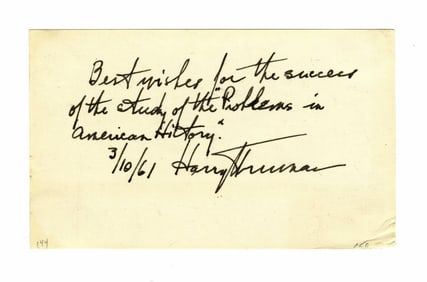 Best wishes for the success
of the study of the "Problems in
American History".
3/10/61 Harry Truman
144